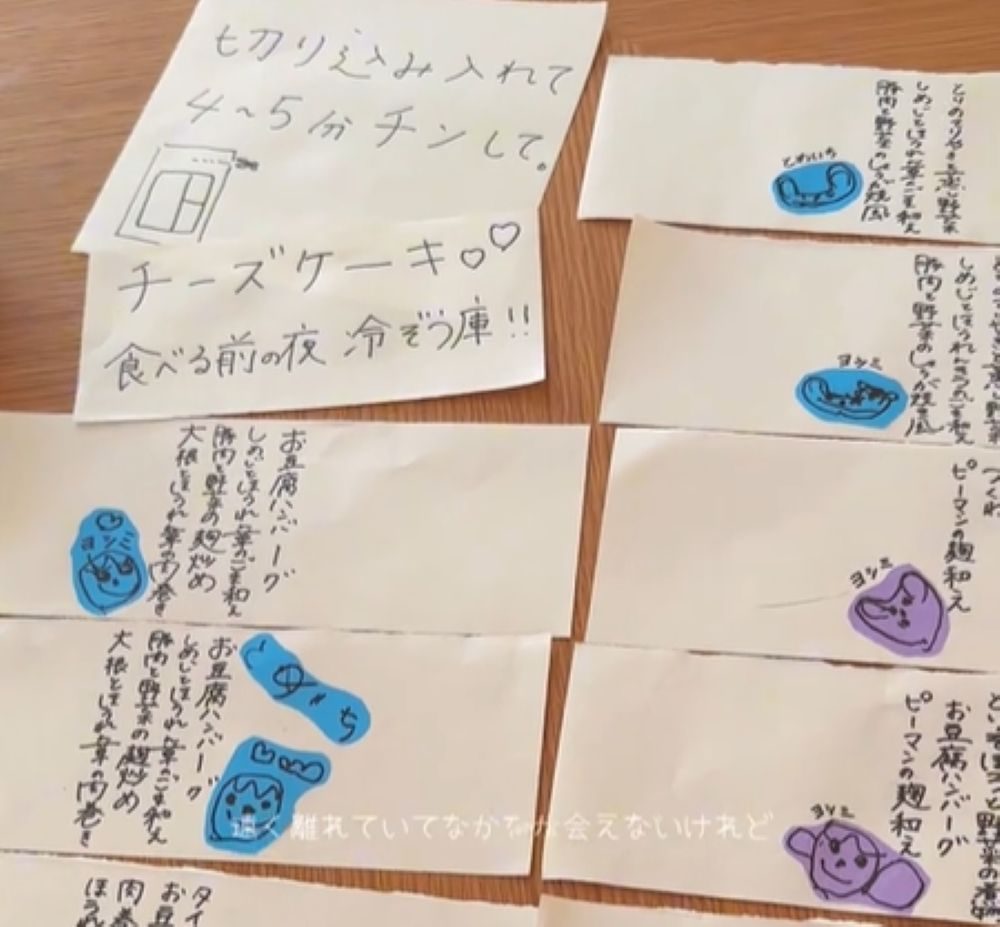 切り込み入れて
4〜5分チンして。
チーズケーキ♡♡
食べる前の夜 冷ぞう庫!!
とりのてりやき
しめじとほうれん草のごま和え
豚肉と野菜のしょうが焼き風
しめじとほうれんそうのごま和え
豚肉と野菜のしょうが焼き風
ヨシミ
つくね
ピーマンの麹和え
ヨシミ
お豆腐ハンバーグ
しめじとほうれん草のごま和え
豚肉と野菜の麹炒め
大根とほうれん草の肉巻き
ヨシミ
お豆腐ハンバーグ
しめじとほうれん草のごま和え
豚肉と野菜の麹炒め
大根とほうれん草の肉巻き
お豆腐ハンバーグ
ピーマンの麹和え
ヨシミ
タイ
お豆
肉巻
ほうれ
遠く離れていてなかなか会えないけれど